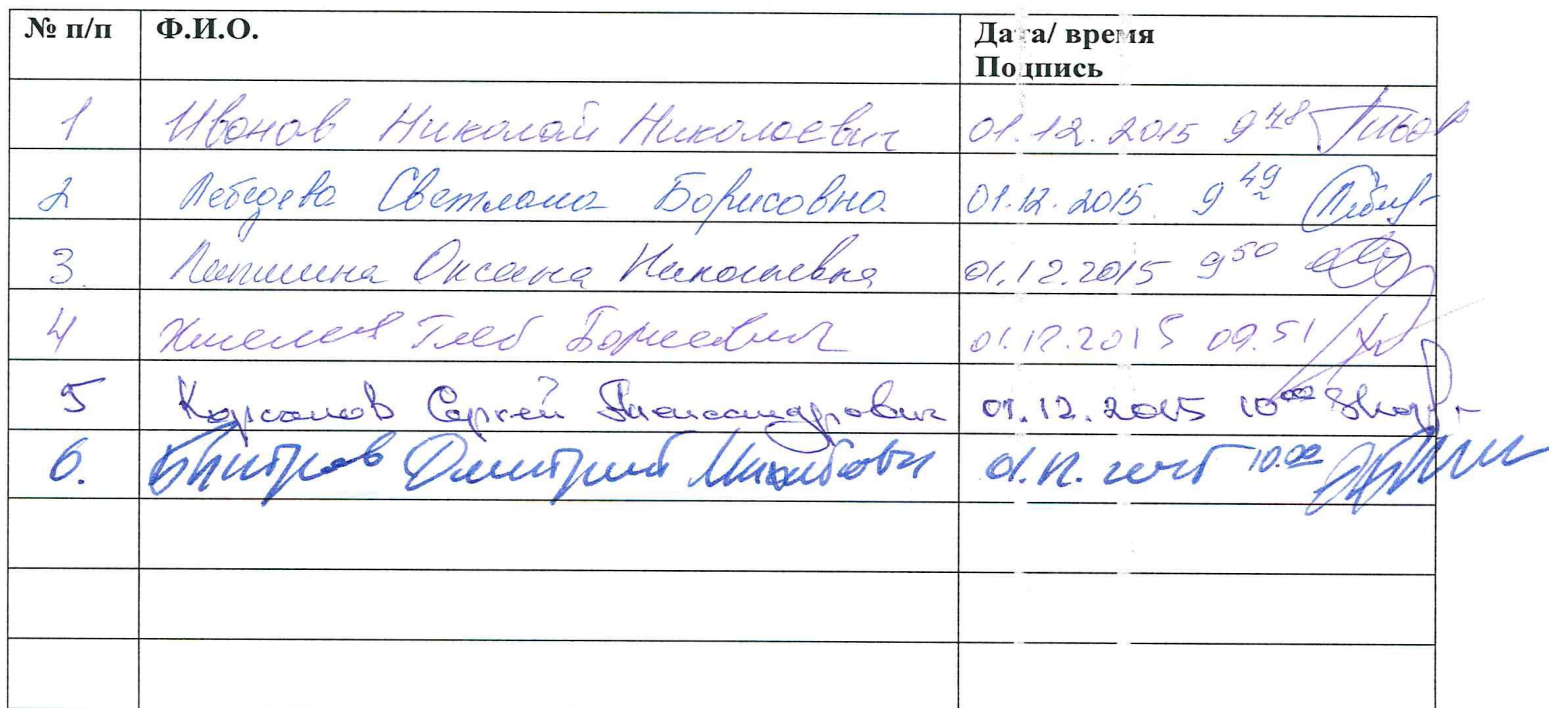 № п/п Ф.И.О. Дата/ время
Подпись
1 Иванов Николай Николаевич 01.12.2015 9 48
2 Лебедева Светлана Борисовна 01.12.2015 9 49
3. Лапшина Оксана Николаевна 01.12.2015 9 50
4 Глеб Борисович 01.12.2015 09.51
5 Сергей Александрович 01.12.2015 10 00
6. Дмитрий Михайлович 01.12.2015 10.00